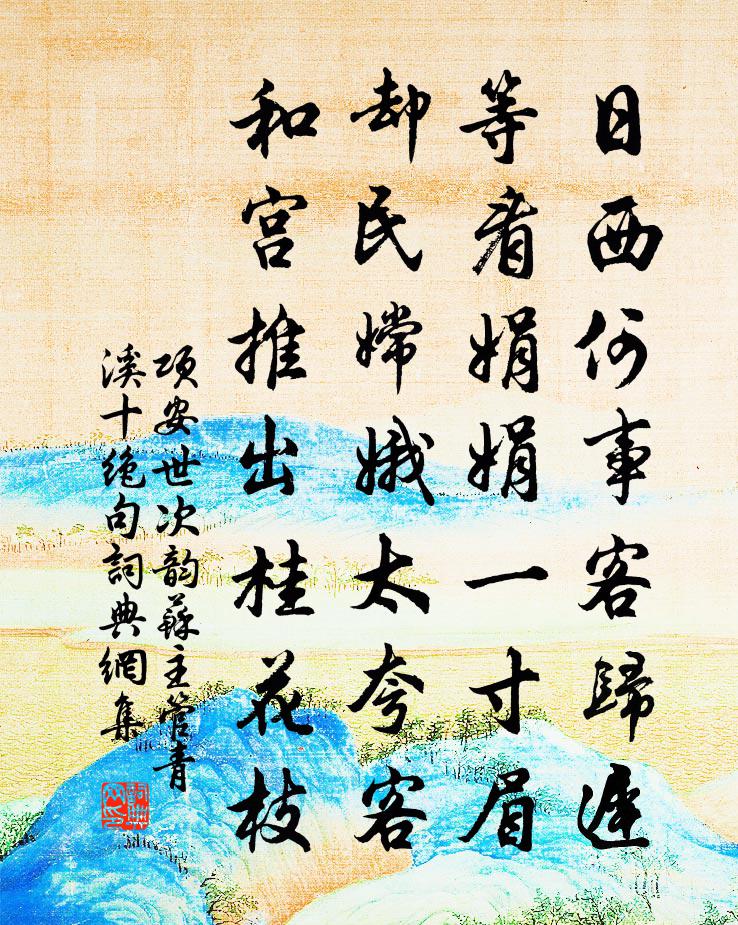 日西何事客歸遲
等着娟娟一寸眉
却民嫦娥太夸客
和宫推出桂花枝
項安世次韵蘇主管青
溪十绝句詞典網集